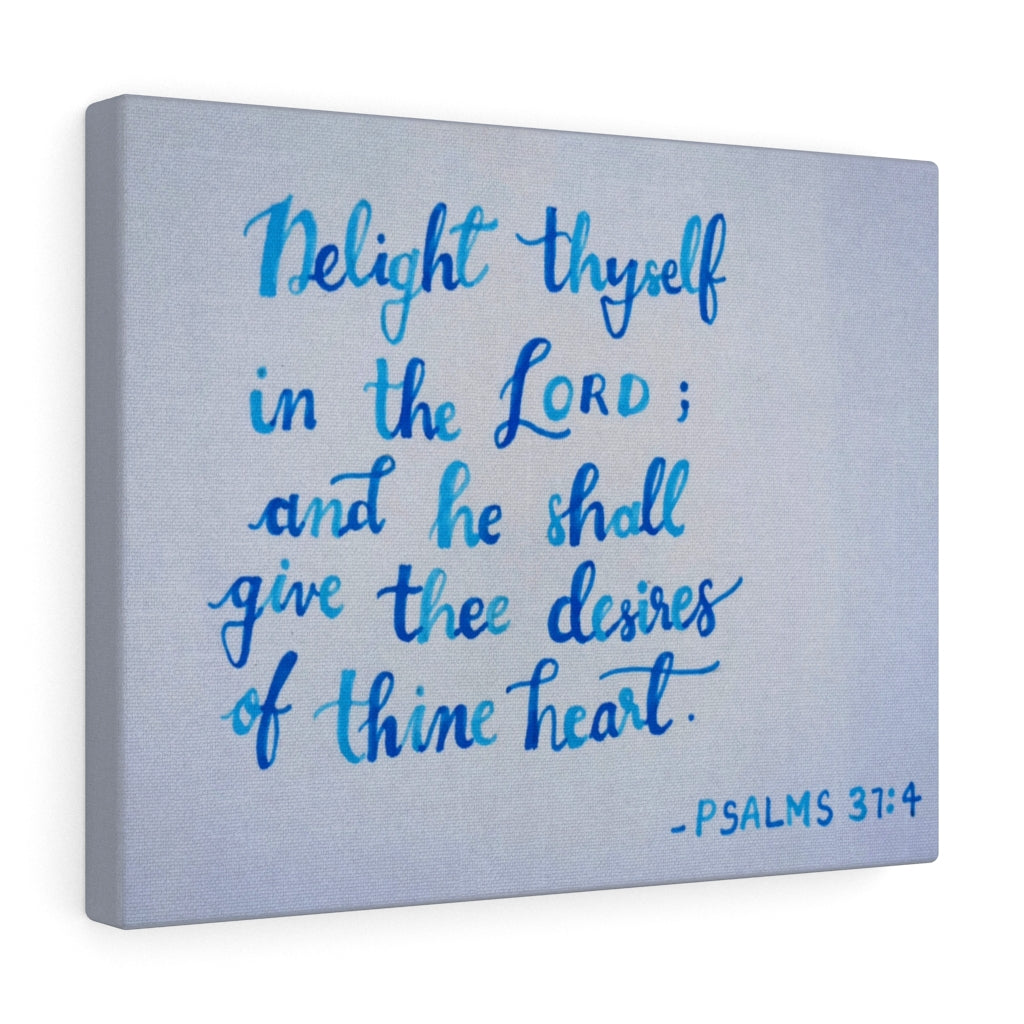 Delight thyself
in the LORD;
and he shall
give thee desires
of thine heart.
-PSALMS 37:4